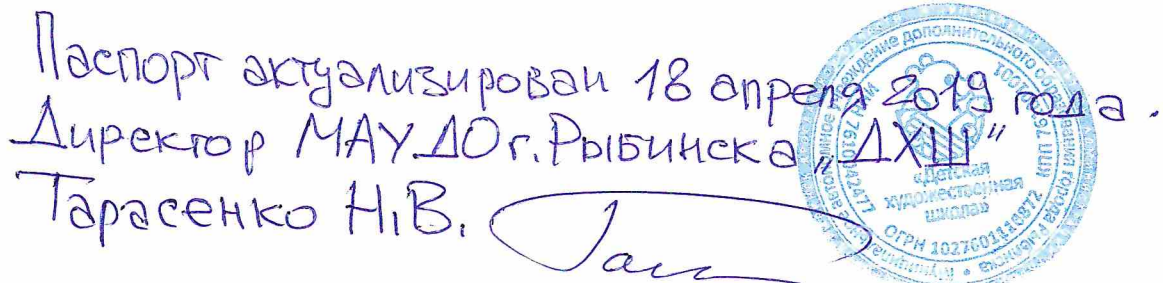 Паспорт актуализирован 18 апреля 2019 года.
Директор МАУ ДО г. Рыбинска „ДХШ"
Тарасенко Н.В.
«Детская
художественная
школа»